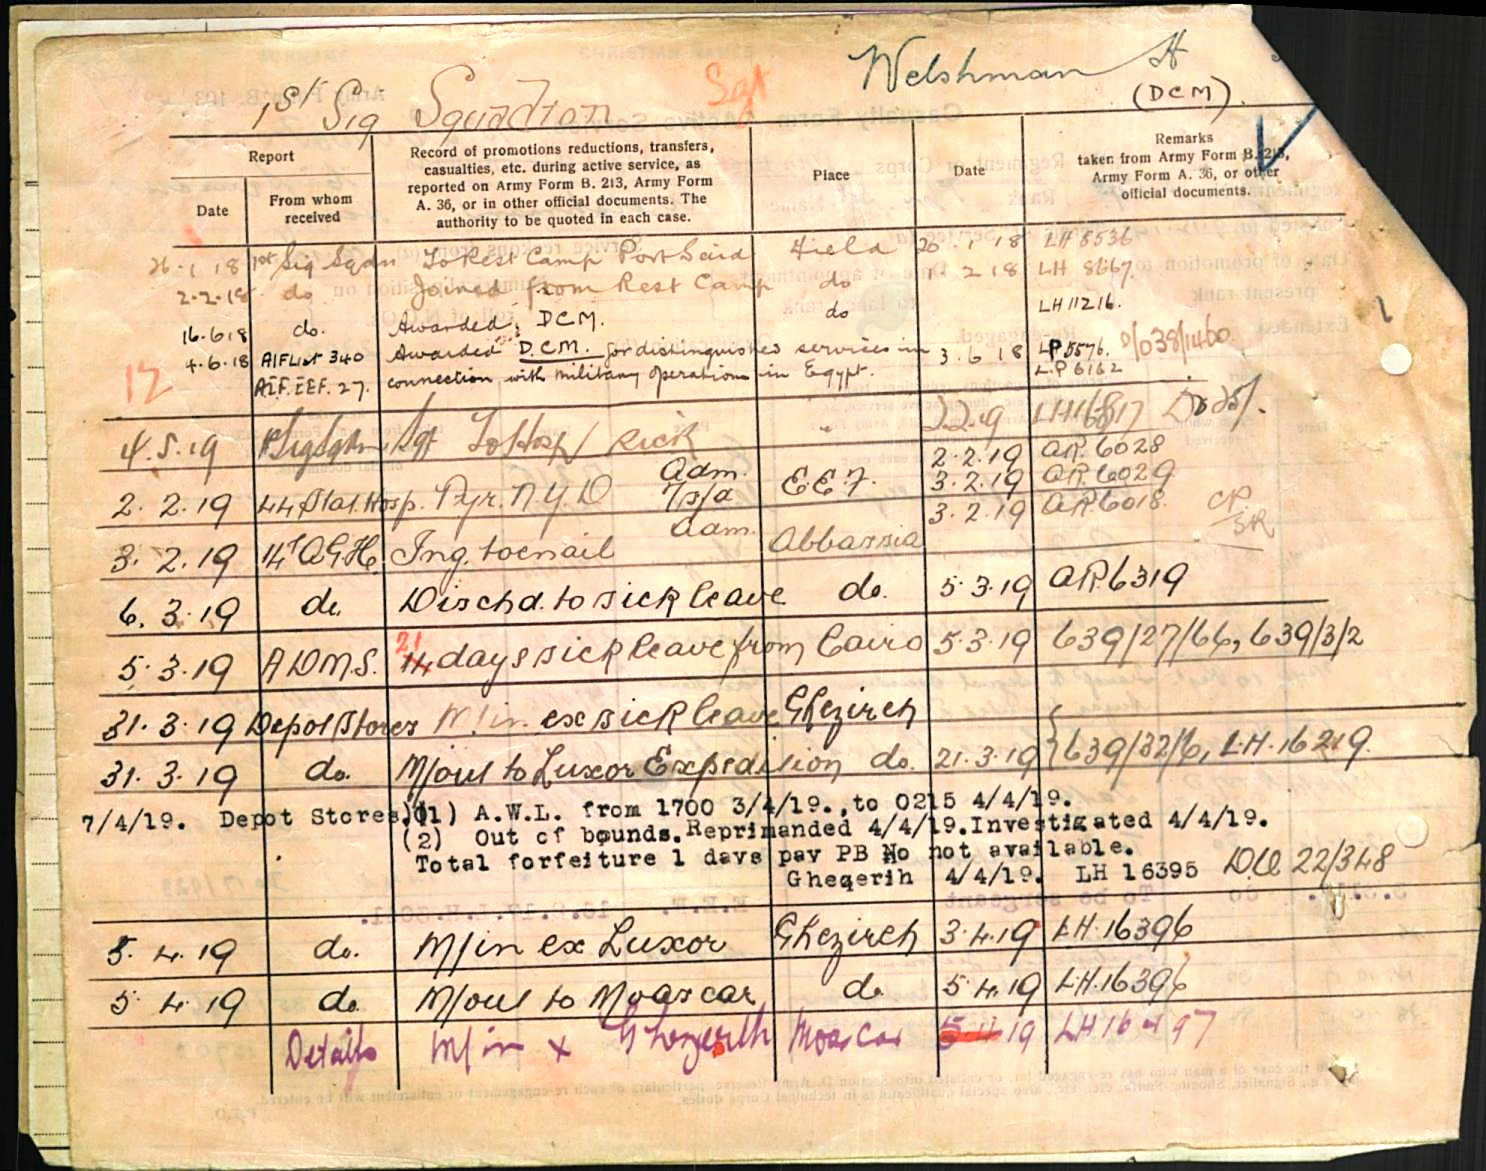 Welshman H
1st Sig Squadron Sgt (DCM).
Report
Date
From whom received
Record of promotions reductions, transfers,
casualties, etc. during active service, as
reported on Army Form B. 213, Army Form
A. 36, or in other official documents. The
authority to be quoted in each case.
Place
Date
Remarks
taken from Army Form B. 213,
Army Form A. 36, or other
official documents.
26.1.18 1st Sig Sqdn To Rest Camp Port Said Field 20.1.18 LH 8536
2.2.18 do Joined from Rest Camp do 1.2.18 LH 8667.
16.6.18 do. Awarded DCM. do LH 11216.
4.6.18 AIF List 340 Awarded D.C.M. for distinguished services in 3.6.18 LP 5576. D/038/1460
12 AIF.EEF.27. connection with military operations in Egypt. L.P 6162
4.5.19 Sig Sqdn Sgt To Hosp Sick " 2.2.19 LH16817
2.2.19 44 Stat. Hosp. Pyr. N.Y.D Adm. E.E.F. 2.2.19 AR.6028
T/s/a 3.2.19 AR.6029
3.2.19 14th A.G.H. Ing. toenail Adm. Abbassia 3.2.19 AR.6018. CR SR
6.3.19 do. Dischd. to sick leave do. 5.3.19 AR.6319
5.3.19 A.D.M.S. 14 21 days sick leave from Cairo 5.3.19 639/27/64, 639/3/2
31.3.19 Depot Stores M/in ex sick leave Ghezireh
31.3.19 do. M/out to Luxor Expedition do. 21.3.19 639/32/6, LH.16219.
7/4/19. Depot Stores.(1) A.W.L. from 1700 3/4/19., to 0215 4/4/19.
(2) Out of bounds. Reprimanded 4/4/19. Investigated 4/4/19.
Total forfeiture 1 days pay PB No not available.
Gheqerih 4/4/19. LH 16395 DCE 22/348
5.4.19 do. M/in ex Luxor Ghezireh 3.4.19 LH.16396
5.4.19 do. M/out to Moascar do 5.4.19 LH.16396
Details M/in x Ghezerih Moascar 5 4 19 LH 16497